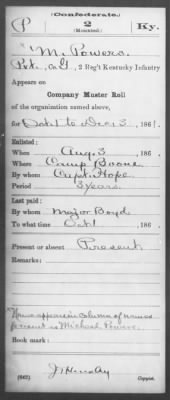 (Confederate.)
P 2 Ky.
(Mounted)
M. Powers
Pvt., Co. G, 2 Reg't Kentucky Infantry
Appears on
Company Muster Roll
of the organization named above,
for Oct 1 to Dec 3, 1861.
Enlisted:
When Aug. 3, 186 .
Where Camp Boone
By whom Capt. Hope
Period 3 years
Last paid:
By whom Major Boyd
To what time Oct 1, 186 .
Present or absent Present
Remarks:
*Name appears in column of names
present as Michael Powers.
Book mark:
(642) Copyist.